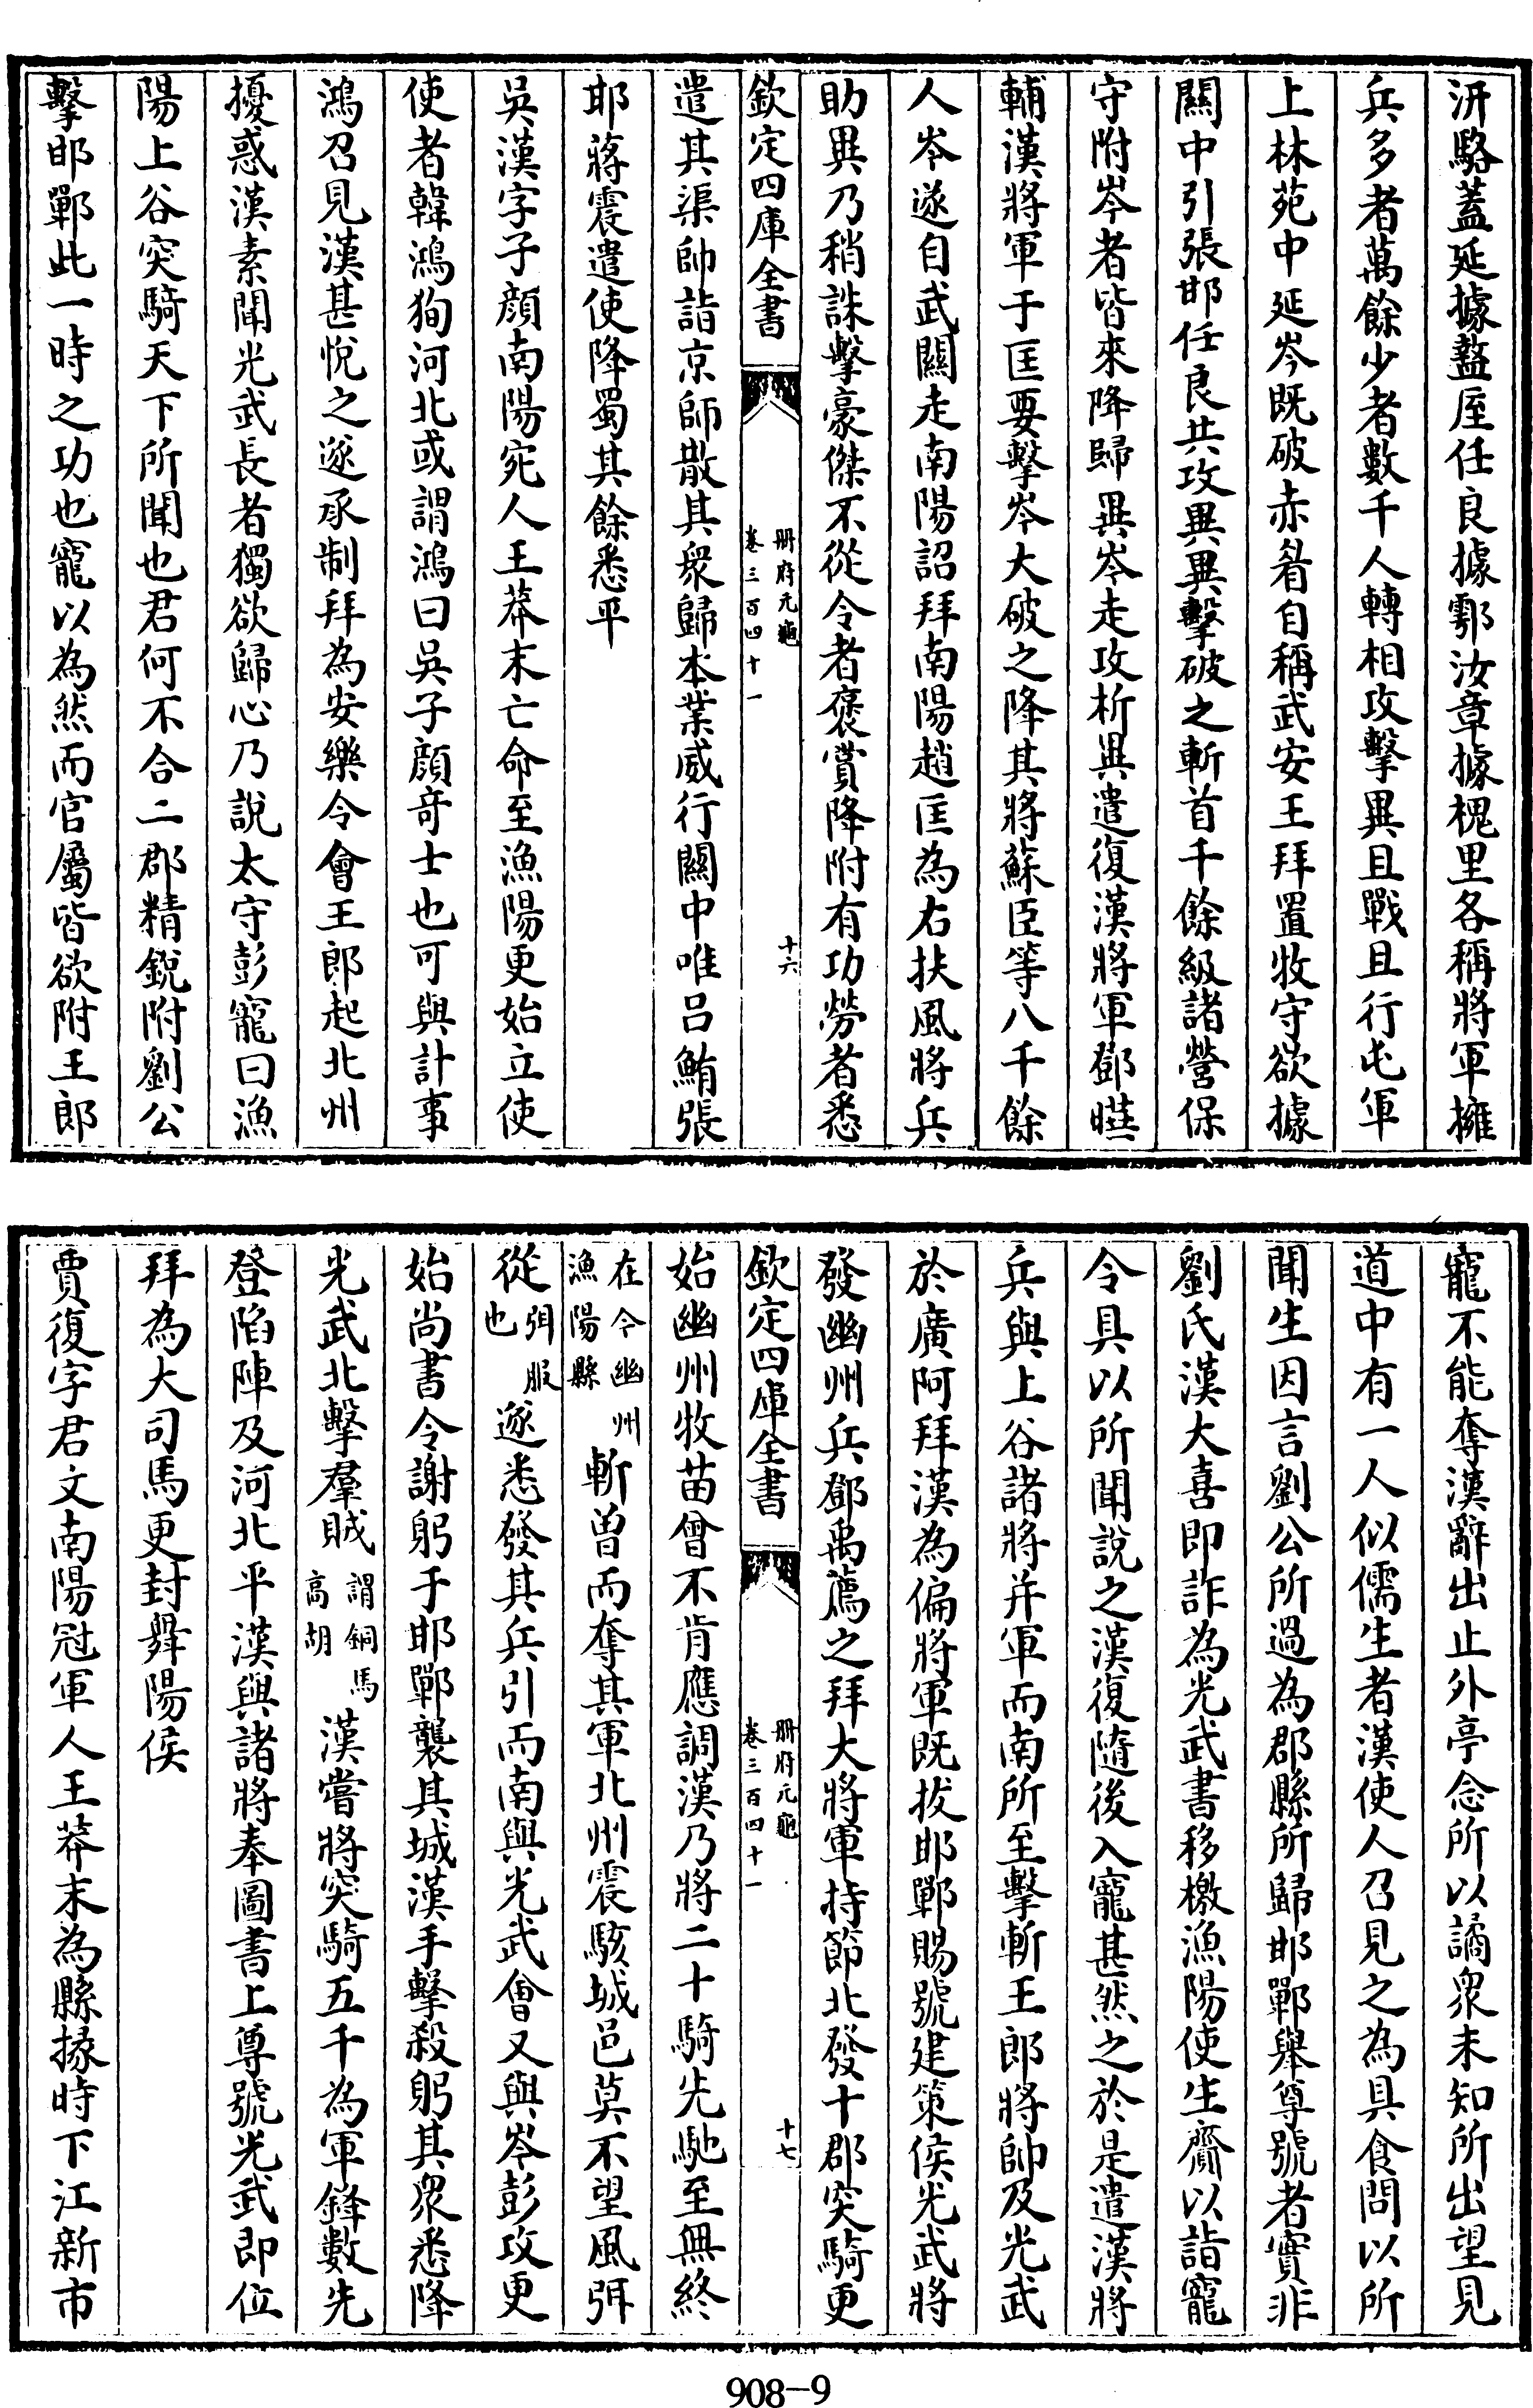 汧駱蓋延據盩厔任良據鄠汝章據槐里各稱將軍擁
兵多者萬餘少者數千人轉相攻擊異且戰且行屯軍
上林苑中延岑既破赤眉自稱武安王拜置牧守欲據
關中引張邯任良共攻異異擊破之斬首千餘級諸營保
守附岑者皆來降歸異岑走攻析異遣復漢將軍鄧曄
輔漢將軍于匡要擊岑大破之降其將蘇臣等八千餘
人岑遂自武關走南陽詔拜南陽趙匡為右扶風將兵
助異乃稍誅擊豪傑不從令者褒賞降附有功勞者悉
欽定四庫全書
册府元龜
卷三百四十一
十六
遣其渠帥詣京師散其衆歸本業威行關中唯呂鮪張
邯蔣震遣使降蜀其餘悉平
吳漢字子顏南陽宛人王莽末亡命至漁陽更始立使
使者韓鴻狥河北或謂鴻曰吳子顏竒士也可與計事
鴻召見漢甚悅之遂承制拜為安樂令會王郎起北州
擾惑漢素聞光武長者獨欲歸心乃說太守彭寵曰漁
陽上谷突騎天下所聞也君何不合二郡精銳附劉公
擊邯鄲此一時之功也寵以為然而官屬皆欲附王郎
寵不能奪漢辭出止外亭念所以譎衆未知所出望見
道中有一人似儒生者漢使人召見之為具食問以所
聞生因言劉公所過為郡縣所歸邯鄲舉尊號者實非
劉氏漢大喜即詐為光武書移檄漁陽使生齎以詣寵
令具以所聞說之漢復隨後入寵甚然之於是遣漢將
兵與上谷諸將并軍而南所至擊斬王郎將帥及光武
於廣阿拜漢為偏將軍既拔邯鄲賜號建策侯光武將
發幽州兵鄧禹薦之拜大將軍持節北發十郡突騎更
欽定四庫全書
册府元龜
卷三百四十一
十七
始幽州牧苗曾不肯應調漢乃將二十騎先馳至無終
在今幽州漁陽縣斬曾而奪其軍北州震駭城邑莫不望風弭
從弭服也遂悉發其兵引而南與光武會又與岑彭攻更
始尚書令謝躬于邯鄲襲其城漢手擊殺躬其衆悉降
光武北擊羣賊謂銅馬高胡漢嘗將突騎五千為軍鋒數先
登陷陣及河北平漢與諸將奉圖書上尊號光武即位
拜為大司馬更封舞陽侯
賈復字君文南陽冠軍人王莽末為縣掾時下江新市
908-9